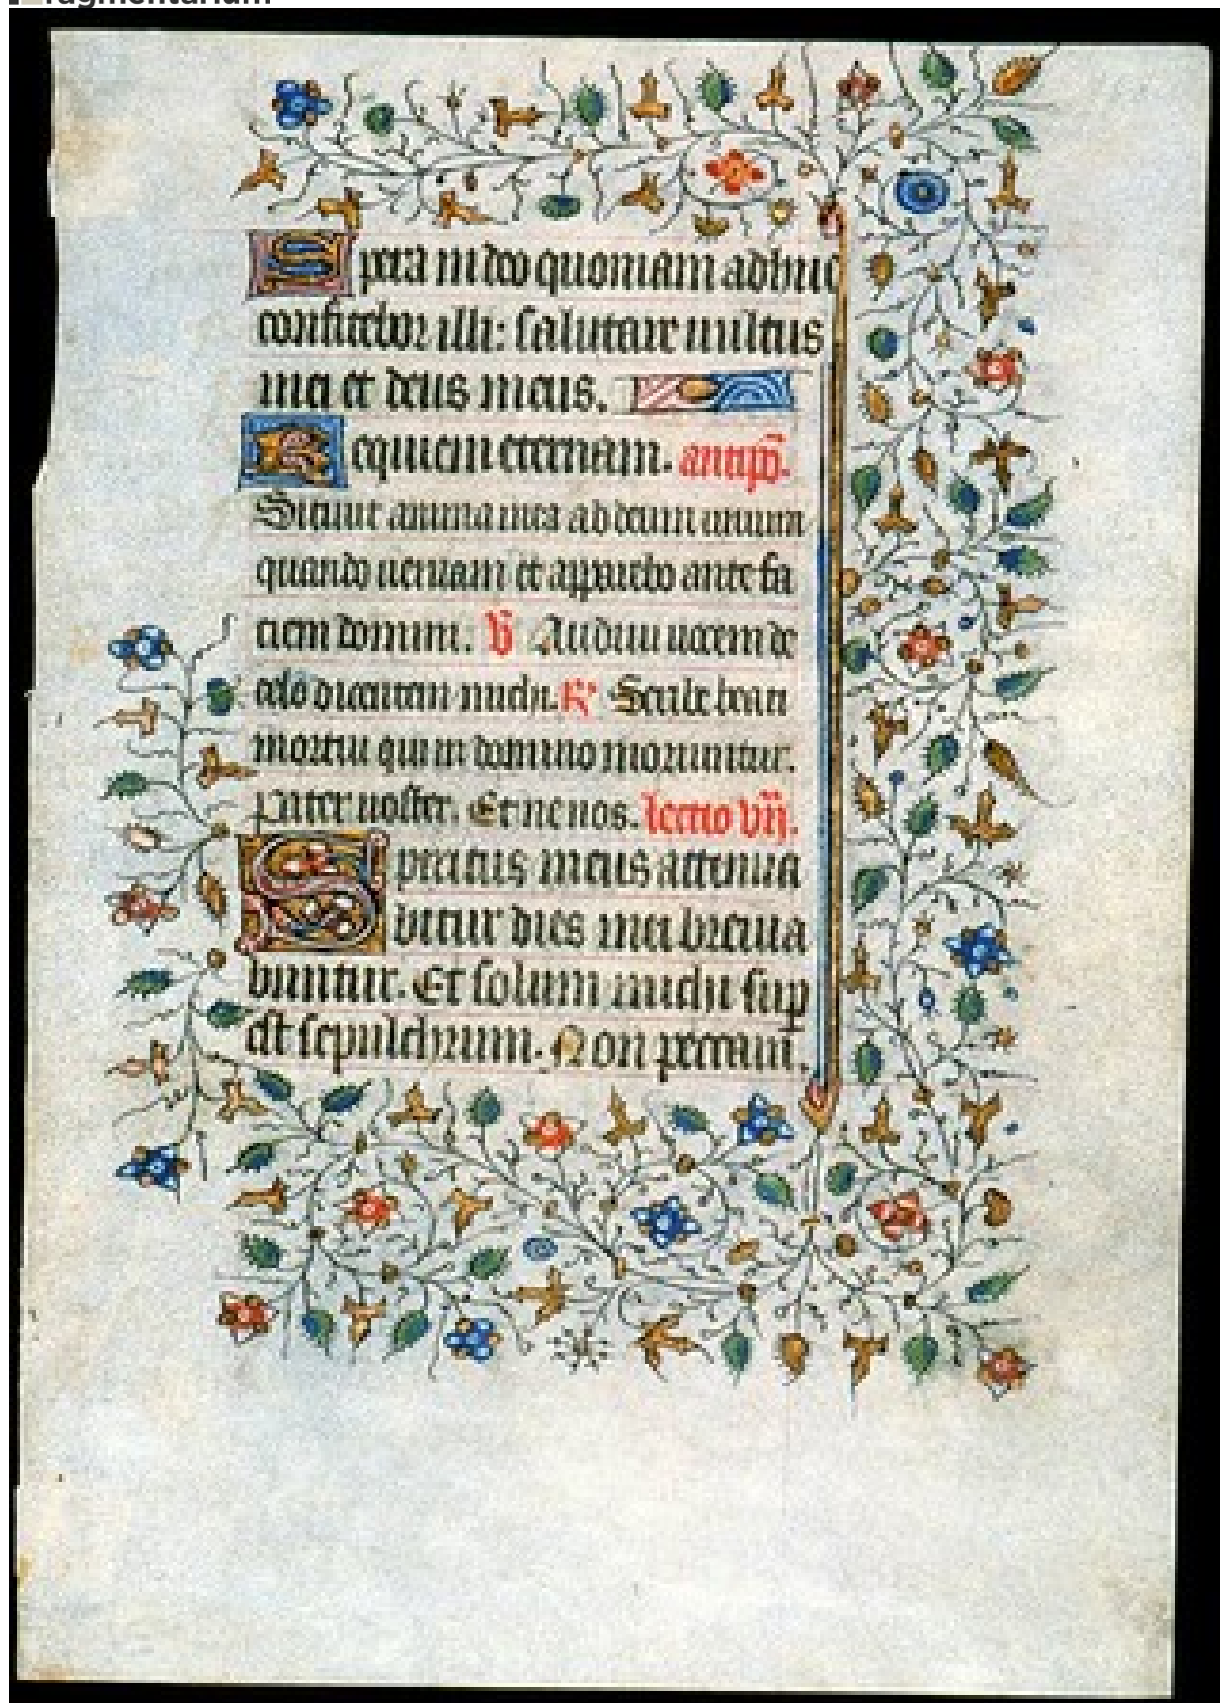 fragmentarium
Spera in deo quoniam adhuc
confitebor illi: salutare vultus
mei et deus meus.
Requiem eternam. antiph̃.
Sitivit anima mea ad deum vivum
quando veniam et apparebo ante fa
ciem domini. V̄ Audivi vocem de
celo dicentem michi. R̄ Beati
mortui qui in domino moriuntur.
Pater noster. Et ne nos. lectio vii.
Spiritus meus attenua
bitur dies mei brevia
buntur. Et solum michi sup
est sepulchrum. Non peccavi.